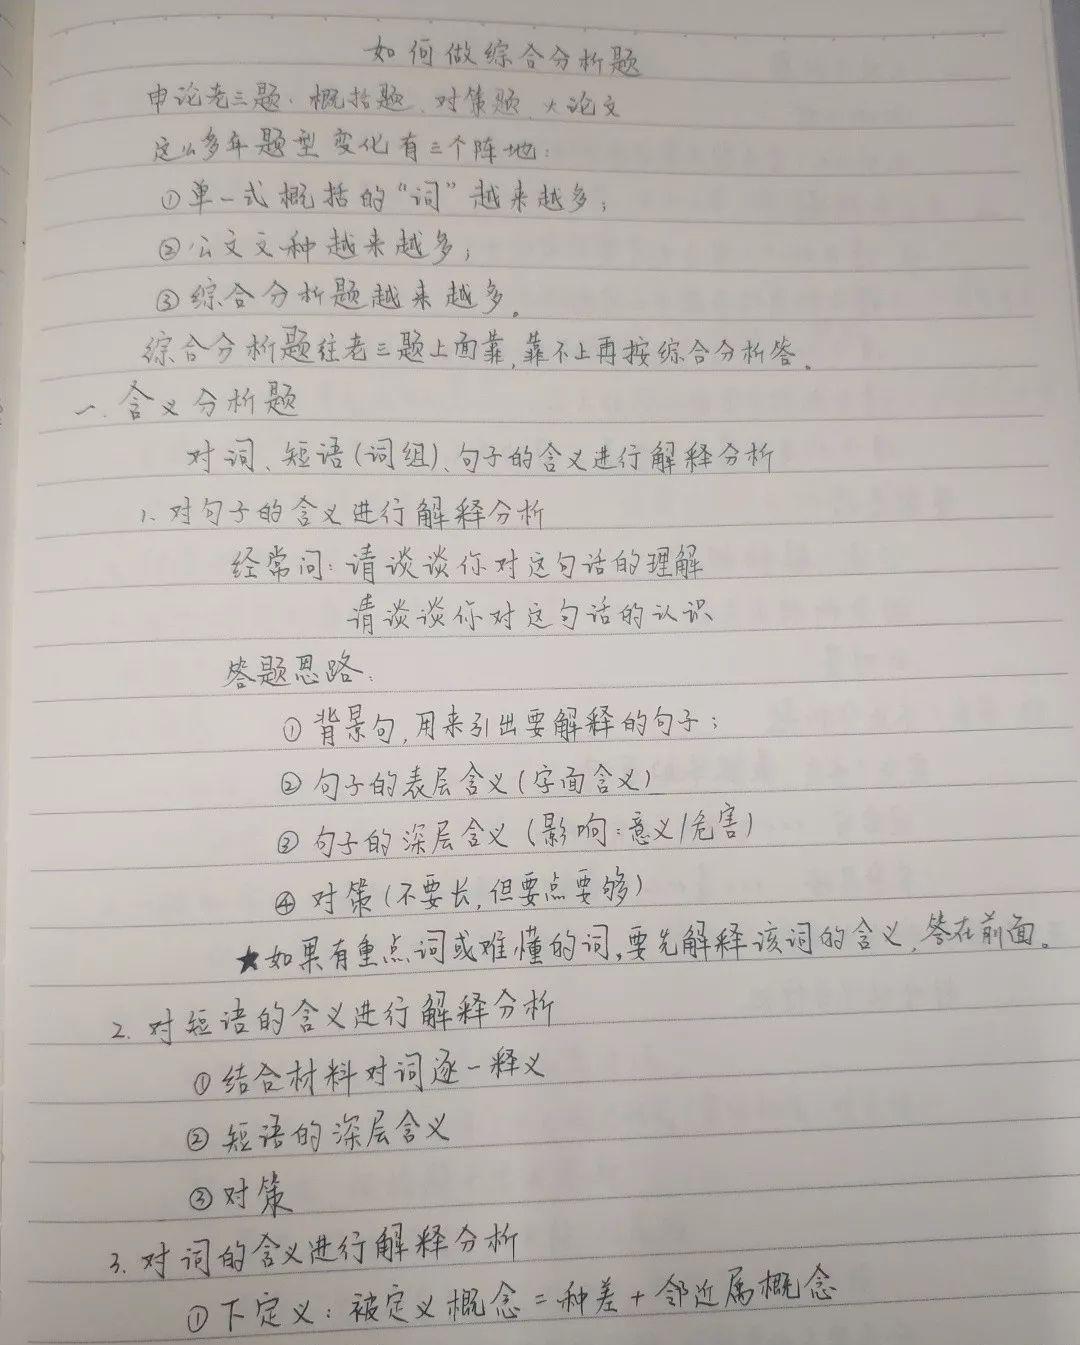 如何做综合分析题
申论老三题:概括题、对策题、大论文
这么多年题型变化有三个阵地:
①单一式概括的“词”越来越多;
②公文文种越来越多;
③综合分析题越来越多。
综合分析题往老三题上面靠,靠不上再按综合分析答。
一.含义分析题
对词、短语(词组)、句子的含义进行解释分析
1.对句子的含义进行解释分析
经常问:请谈谈你对这句话的理解
请谈谈你对这句话的认识
答题思路:
①背景句,用来引出要解释的句子;
②句子的表层含义(字面含义)
③句子的深层含义(影响:意义/危害)
④对策(不要长,但要点要够)
★如果有重点词或难懂的词,要先解释该词的含义,答在前面。
2.对短语的含义进行解释分析
①结合材料对词逐一释义
②短语的深层含义
③对策
3.对词的含义进行解释分析
①下定义:被定义概念=种差+邻近属概念